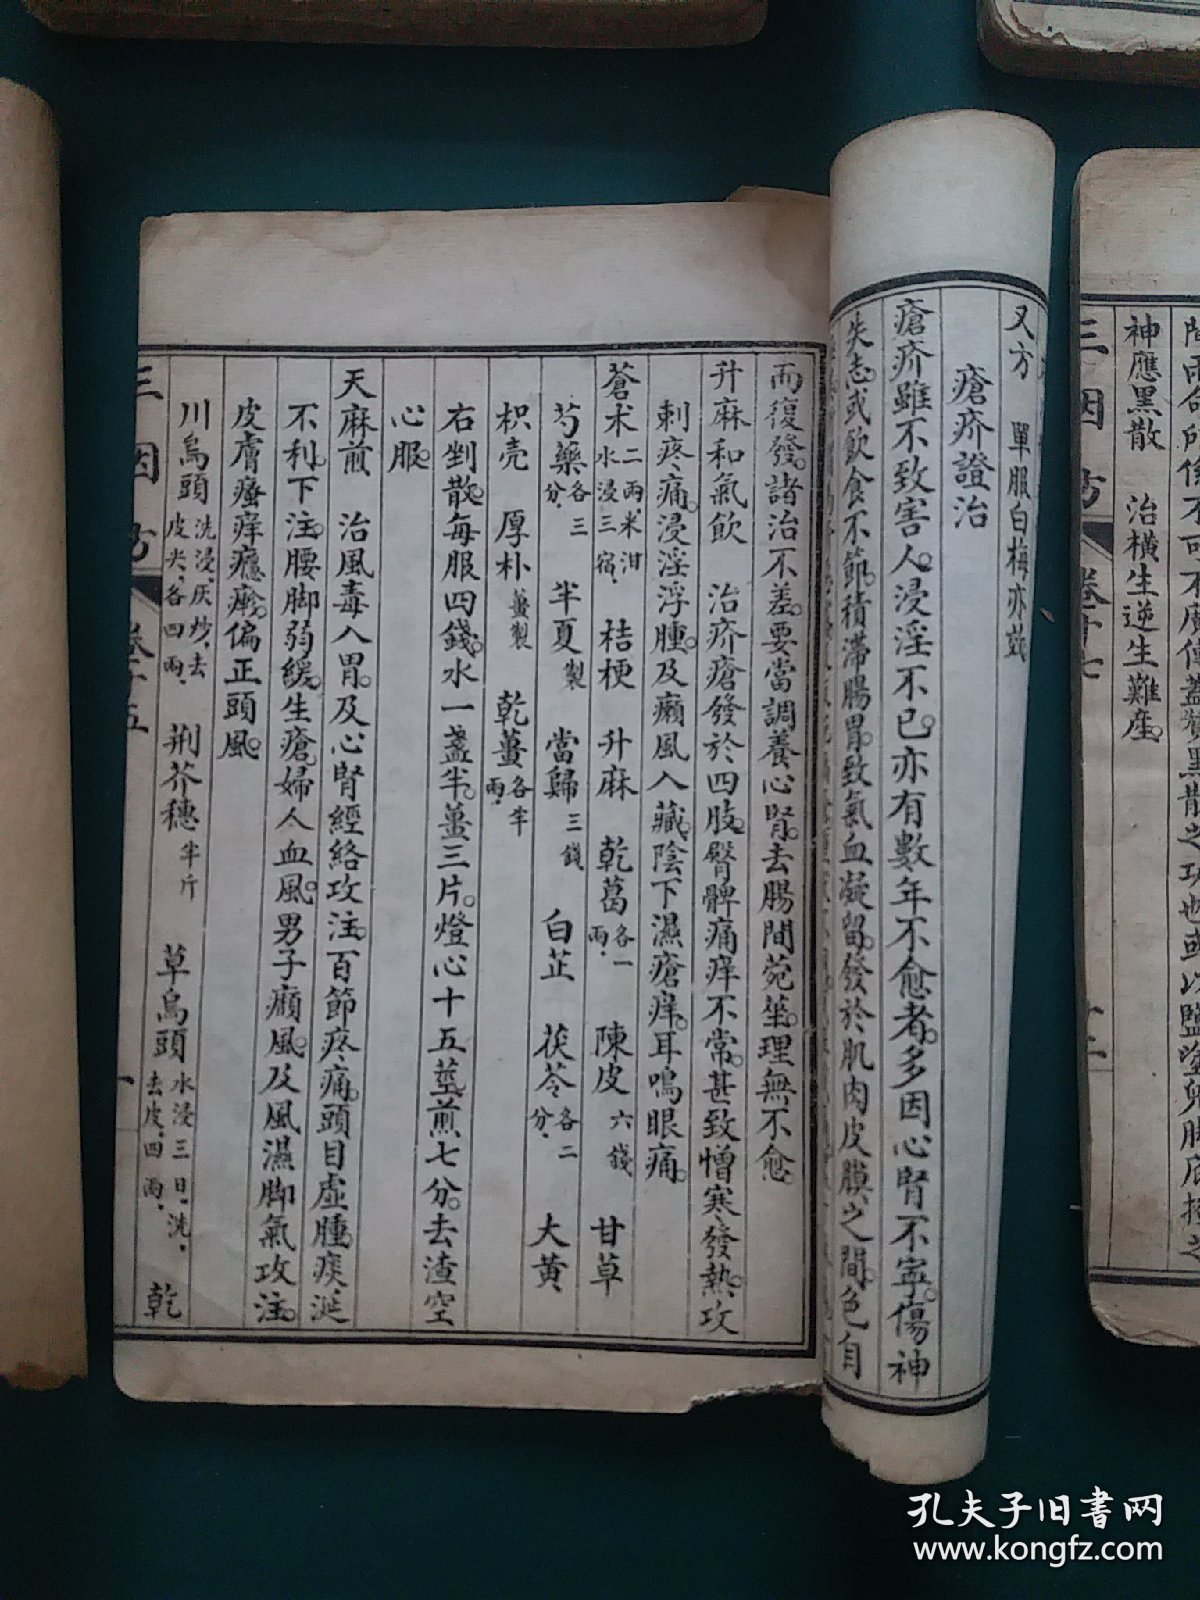 間雨命所係不可不廣傳蓋贊黑散之功也或以鹽塗兒脚底搔之
神應黑散　治橫生逆生難產
三因方　卷十七
又方　單服白梅亦效
瘡疥證治
瘡疥雖不致害人浸淫不已亦有數年不愈者多因心腎不寧傷神
失志或飲食不節積滯腸胃致氣血凝留發於肌肉皮膜之間色自
而復發諸治不差要當調養心腎去腸間菀坐理無不愈
升麻和氣飲　治疥瘡發於四肢臀髀痛痒不常甚致憎寒發熱攻
刺疼痛浸淫浮腫及癩風入藏陰下濕瘡痒耳鳴眼痛
蒼朮二兩米泔水浸三宿　桔梗　升麻　乾葛各一兩　陳皮六錢　甘草
芍藥各三分　半夏製　當歸三錢　白芷　茯苓各二分　大黃
枳壳　厚朴薑製　乾薑各半兩
右剉散每服四錢水一盞半薑三片燈心十五莖煎七分去渣空
心服
天麻煎　治風毒入胃及心腎經絡攻注百節疼痛頭目虛腫痰涎
不利下注腰脚弱緩生瘡婦人血風男子癩風及風濕脚氣攻注
皮膚瘙痒癮㾦偏正頭風
川烏頭洗浸灰炒去皮尖各四兩　荆芥穗半斤　草烏頭水浸三日洗去皮四兩　乾
三因方　卷十五　一
孔夫子旧書网
www.kongfz.com